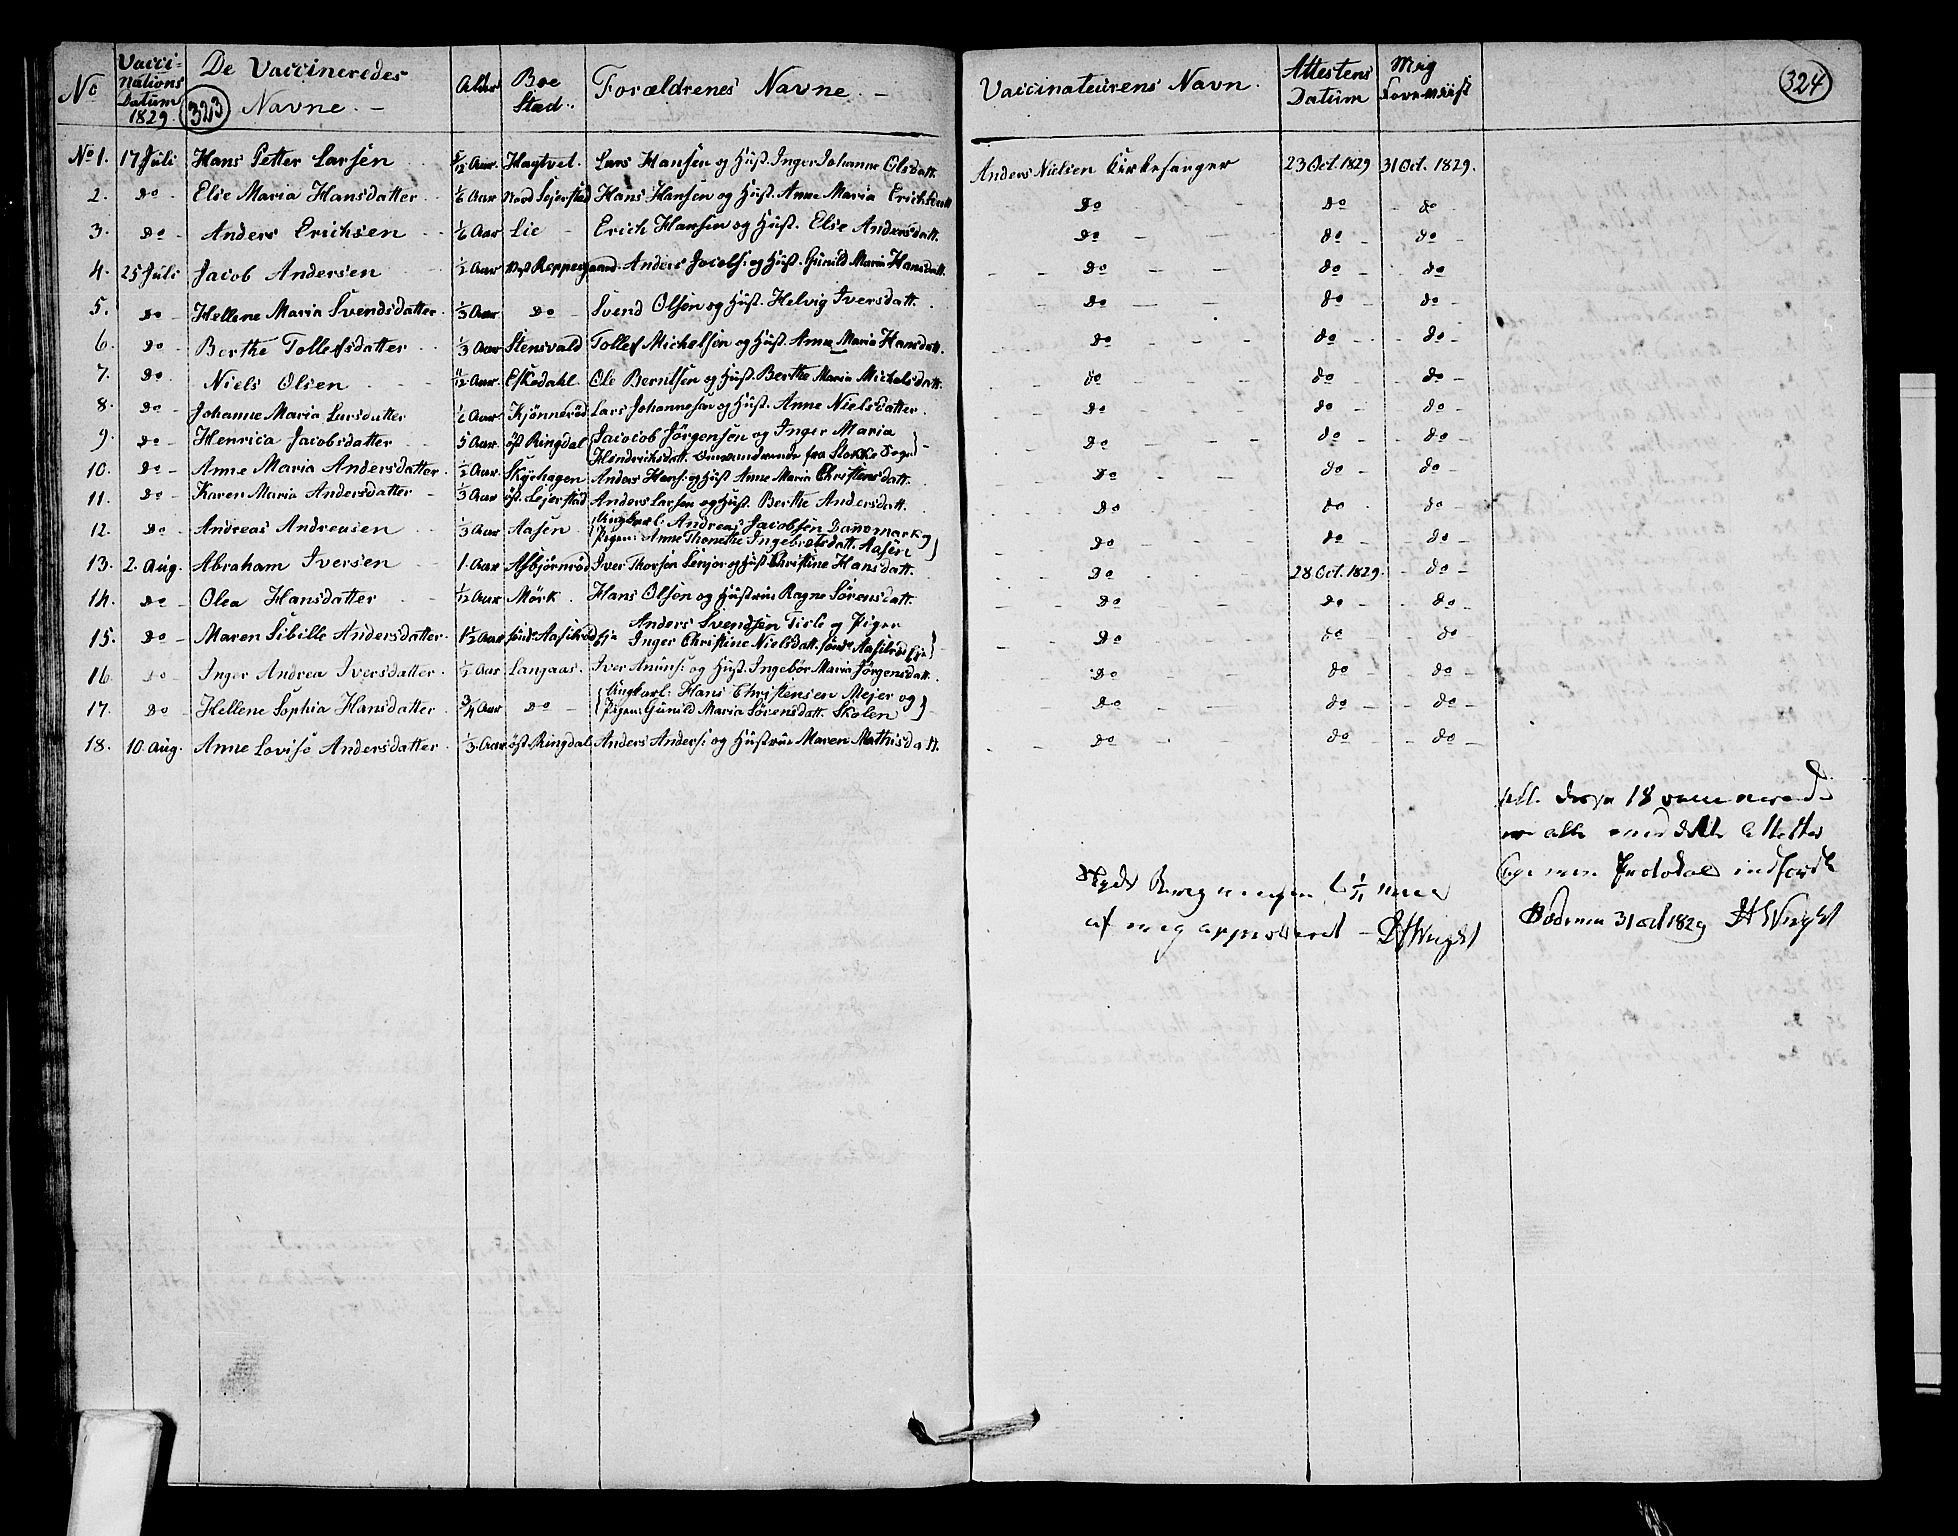 No Vaccinations Datum 1829 De Vaccineredes Navne. Alder Boe Stæd. Forældrenes Navne. Vaccinateurens Navn. Attestens Datum Mig Foreviist
323
324
No 1. 17 Juli Hans Petter Larsen 5/12 Aar Haytvet. Lars Hansen og Hust. Inger Johanne Olsdatt. Anders Nielsen Kirkesanger 23 Oct. 1829 31 Oct. 1829.
2. do Else Maria Hansdatter 1/6 Aar Nord Sejerstad Hans Hansen og Hust. Anne Maria Erichsdatt do do do
3. do Anders Erichsen 1/6 Aar Lie Erich Hansen og Hust. Else Andersdatt. do do do
4. 25 Juli Jacob Andersen 1/2 Aar Vest Reppegaard. Anders Jacobs: og Hust. Gunild Maria Hansdatt. do do do
5. do Hellene Maria Svendsdatter 1/3 Aar do Svend Olsen og Hust. Helvig Iversdatt. do do do
6. do Berthe Tollefsdatter 1/3 Aar Stensvald Tollef Michelsen og Hust. Anne Maria Hansdatt. do do do
7. do Niels Olsen 11/12 Aar Eskedahl. Ole Berntsen og Hust. Berthe Maria Michelsdatt. do do do
8. do Johanne Maria Larsdatter 1/2 Aar Kjönneröd Lars Johannesen og Hust. Anne Nielsdatter. do do do
9. do Henrica Jacobsdatter 5 Aar öst Ringdal Jacocob Jörgensen og Inger Maria do do do
Hendriksdatt. omvandrende fra Stokke Sogn
10. do Anne Maria Andersdatter 1/2 Aar Skyrhagen Anders Hans: og Hust Anne Maria Christensdatt. do do do
11. do Karen Maria Andersdatter 1/3 Aar öst. Sejerstad Anders Larsen og Hust. Berthe Andersdatt. do do do
12. do Andreas Andreasen 1/3 Aar Aasen Ungkarl: Andreas Jacobsen Danemark og do do do
Pigen: Anne Thonette Ingebretsdatt. Aasen
13. 2. Aug. Abraham Iversen 1. Aar Asbjørnröd Iver Thorsen Senjor og Hust Christine Hansdatt. do 28 Oct. 1829. do
14. do Olea Hansdatter 1/12 Aar Mörk. Hans Olsen og Hustrue Ragne Sörensdatt. do do do
15. do Maren Sibille Andersdatter 1 1/2 Aar sönd: Aasilröd Eje Anders Svendsen Tirle og Piger do do do
Inger Christine Nielsdatt. sönd: Aasilröd Eje
16. do Inger Andrea Iversdatter 1/2 Aar Langaas. Iver Amuns: og Hust. Ingebör Maria Jörgensdatt. do do do
17. do Hellene Sophia Hansdatter 3/4 Aar do Ungkarl: Hans Christensen Mejer og do do do
Pigen: Gunild Maria Sörensdatt. Skolen
18. 10. Aug. Anne Lovise Andersdatter 1/3 Aar öst Ringdal. Anders Anders: og Hustrue Maren Mathisdatt. do do do
At disse 18 vaccinerede
er alle med dette Attester
Protokol indförte
31 oct 1829 Wright
af mig Wright